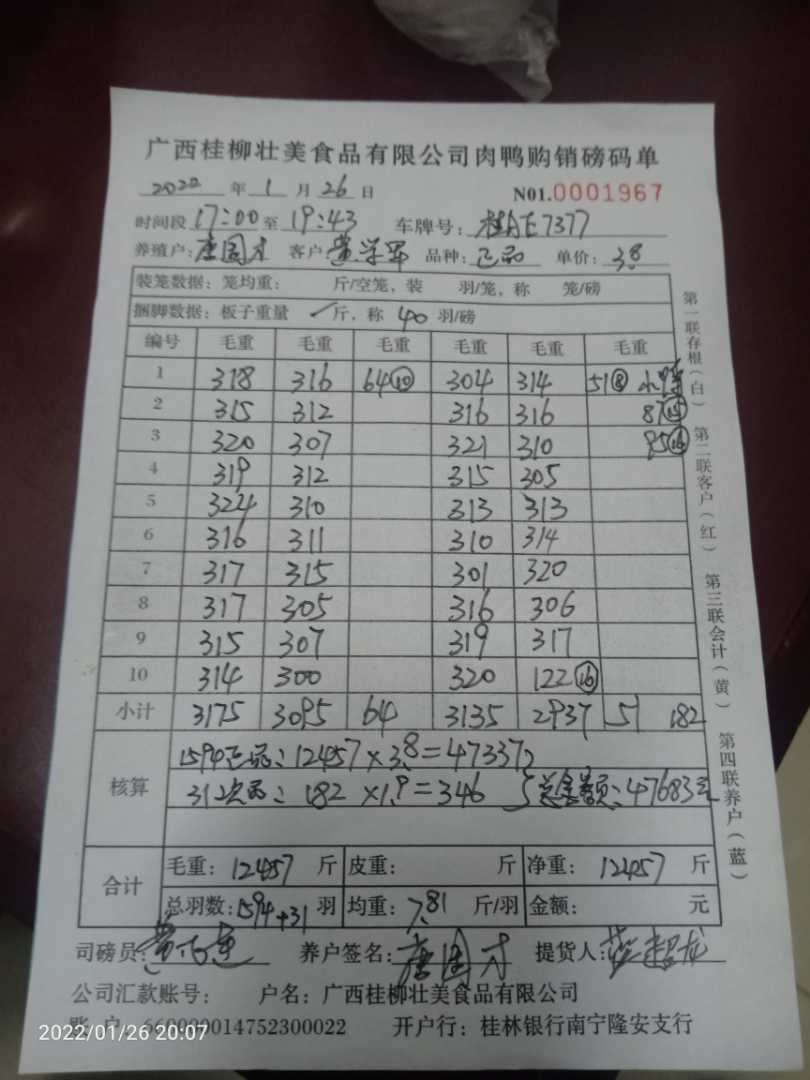 广西桂柳壮美食品有限公司肉鸭购销磅码单
2022 年 1 月 26 日 N01.0001967
时间段 17:00 至 19:43 车牌号: 桂AE7377
养殖户: 唐国才 客户 黄学军 品种: 正品 单价: 3.8
装笼数据: 笼均重: 斤/空笼, 装 羽/笼, 称 笼/磅
捆脚数据: 板子重量 斤, 称 40 羽/磅
编号 毛重 毛重 毛重 毛重 毛重 毛重
1 318 316 64⑩ 304 314 51⑧
2 315 312 316 316 87⑮
3 320 307 321 310 95⑯
4 319 312 315 305
5 324 310 313 313
6 316 311 310 314
7 317 315 301 320
8 317 305 316 306
9 315 307 319 317
10 314 300 320 122⑯
小计 3175 3095 64 3135 2937 51 182
核算
1594正品: 12457×3.8=47337
31只次品: 182×1.9=346 总金额: 47683元
合计
毛重: 12457 斤 皮重: 斤 净重: 12457 斤
总羽数: 1594+31 羽 均重: 7.81 斤/羽 金额: 元
司磅员: 养户签名: 唐国才 提货人:
公司汇款账号: 户名: 广西桂柳壮美食品有限公司
账户 660000014752300022 开户行: 桂林银行南宁隆安支行
第一联存根(白) 第二联客户(红) 第三联会计(黄) 第四联养户(蓝)
2022/01/26 20:07